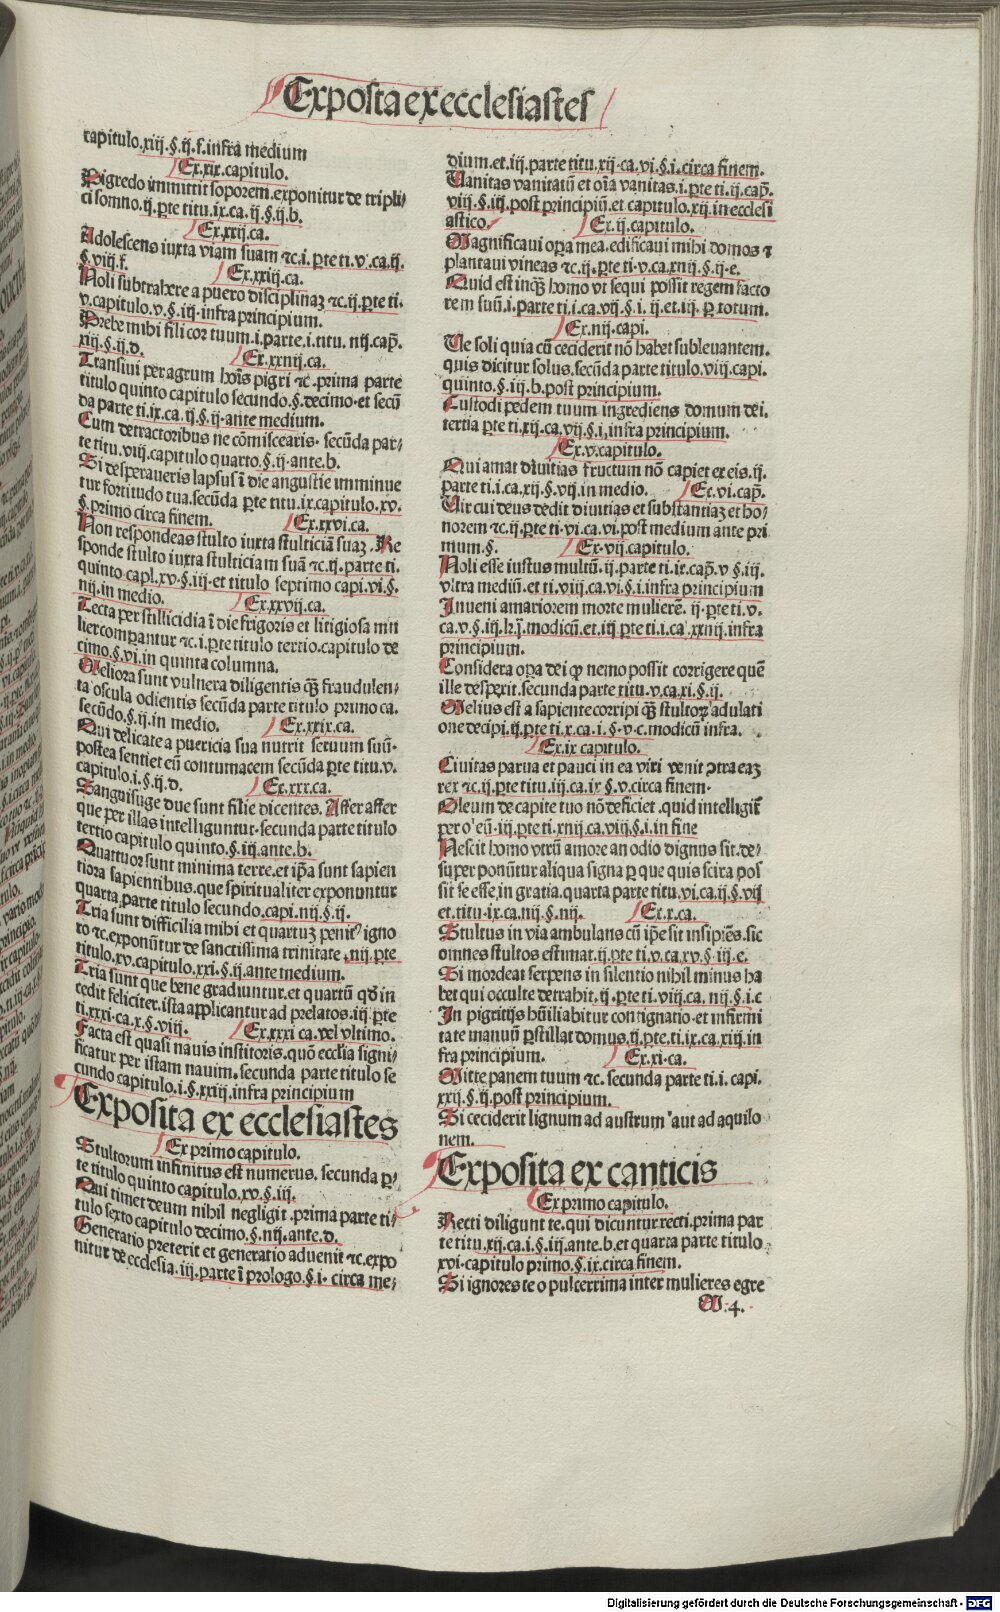 Exposta ex ecclesiastes
capitulo.xiij.§.ij.f.infra medium
Ex.xix.capitulo.
Pigredo immittit soporem.exponitur de tripli/
ci somno.ij.ꝑte titu.ix.ca.ij.§.ij.b.
Ex.xxij.ca.
Adolescens iuxta viam suam ⁊c.i.ꝑte ti.v.ca.ij.
§.viij.f.
Ex.xxiij.ca.
Noli subtrahere a puero disciplinaꝫ ⁊c.ij.ꝑte ti.
v.capitulo.v.§.iij.infra principium.
Prebe mihi fili cor tuum.i.parte.i.titu.iiij.cap̄.
xiij.§.ij.d.
Ex.xxiiij.ca.
Transiui per agrum hoīs pigri ⁊c.prima parte
titulo quinto capitulo secundo.§.decimo.et secū
da parte ti.ix.ca.ij.§.ij.ante medium.
Cum detractoribus ne cōmiscearis. secūda par/
te titu.viij.capitulo quarto.§.ij.ante.b.
Si desperaueris lapsus ī die angustie imminue
tur fortitudo tua.secūda ꝑte titu.ix.capitulo.xv.
§.primo circa finem.
Ex.xxvi.ca.
Non respondeas stulto iuxta stulticiā suaꝫ. Re
sponde stulto iuxta stulticiam suā ⁊c.ij.parte ti.
quinto capl.xv.§.iij.et titulo septimo capi.vi.§.
iiij.in medio.
Ex.xxvij.ca.
Tecta per stillicidia ī die frigoris et litigiosa mu
lier comparantur ⁊c.i.ꝑte titulo tertio.capitulo de
cimo.§.vi.in quinta columna.
Meliora sunt vulnera diligentis qꝫ̄ fraudulen/
ta oscula odientis secūda parte titulo primo ca.
secūdo.§.ij.in medio.
Ex.xxix.ca.
Qui delicate a puericia sua nutrit seruum suū.
postea sentiet eū contumacem secūda ꝑte titu.v.
capitulo.i.§.ij.d.
Ex.xxx.ca.
Sanguisuge due sunt filie dicentes. Affer affer
que per illas intelliguntur.secunda parte titulo
tertio capitulo quinto.§.iij.ante.b.
Quattuor sunt minima terre.et ip̄a sunt sapien
tiora sapientibus.que spiritualiter exponuntur
quarta parte titulo secundo.capi.iiij.§.ij.
Tria sunt difficilia mihi et quartuꝫ penit⁹ igno
ro ⁊c.exponūtur de sanctissima trinitate.iiij.ꝑte
titulo.xv.capitulo.xxi.§.ij.ante medium.
Tria sunt que bene gradiuntur.et quartū qd̄ in
cedit feliciter.ista applicantur ad prelatos.iij.ꝑte
ti.xxxi.ca.x.§.viij.
Ex.xxxi ca.vel vltimo.
Facta est quasi nauis institoris.quō ecclīa signi/
ficatur per istam nauim.secunda parte titulo se
cundo capitulo.i.§.xxiij.infra principium
Exposita ex ecclesiastes
Ex primo capitulo.
Stultorum infinitus est numerus. secunda ꝑ/
te titulo quinto capitulo.xv.§.iij.
Qui timet deum nihil negligit.prima parte ti/
tulo sexto capitulo decimo.§.iiij.ante.d.
Generatio preterit et generatio aduenit ⁊c.expo
nitur de ecclesia.iij.parte ī prologo.§.i. circa me/
dium.et.iij.parte titu.xij.ca.vi.§.i.circa finem.
Vanitas vanitatū et oīa vanitas.i.ꝑte ti.ij.cap̄.
viij.§.iij.post principiū.et capitulo.xij.in ecclesi
astico.
Ex.ij.capitulo.
Magnificaui oꝑa mea.edificaui mihi domos ⁊
plantaui vineas ⁊c.ij.ꝑte ti.v.ca.xiiij.§.ij.e.
Quid est inqꝫ̄ homo vt sequi possit regem facto
rem suū.i.parte ti.i.ca.vij.§.i.ij.et.iij.ꝑ totum.
Ex.iiij.capi.
Ve soli quia cū ceciderit nō habet subleuantem.
quis dicitur solus.secūda parte titulo.viij.capi.
quinto.§.iij.b.post principium.
Custodi pedem tuum ingrediens domum dei.
tertia ꝑte ti.xij.ca.vij.§.i.infra principium.
Ex.v.capitulo.
Qui amat diuitias fructum nō capiet ex eis.ij.
parte ti.i.ca.xij.§.vij.in medio.
Ex.vi.cap̄.
Vir cui deus dedit diuitias et substantiaꝫ et ho/
norem ⁊c.ij.ꝑte ti.vi.ca.vi.post medium ante pri
mum.§.
Ex.vij.capitulo.
Noli esse iustus multū.ij.parte ti.ix.cap̄.v §.iij.
vltra mediū.et ti.viij.ca.vi.§.i.infra principium
Inueni amariorem morte mulierē. ij.ꝑte ti.v.
ca.v.§.iij.k.j.modicū.et.iij ꝑte ti.i.ca.xxiij.infra
principium.
Considera oꝑa dei qꝫ nemo possit corrigere quē
ille despexit.secunda parte titu.v.ca.xi.§.ij.
Melius est a sapiente corripi qꝫ̄ stultoꝝ adulati
one decipi.ij.ꝑte ti.x.ca.i.§.v.c.modicū infra.
Ex.ix capitulo.
Ciuitas parua et pauci in ea viri venit ↄtra eaꝫ
rex ⁊c.ij.ꝑte titu.iij.ca.ix §.v.circa finem.
Oleum de capite tuo nō deficiet.quid intelligit̄
per o'eū.iij.ꝑte ti.xiiij.ca.viij.§.i.in fine
Nescit homo vtrū amore an odio dignus sit.de/
super ponūtur aliqua signa per que quis scira pos
sit se esse in gratia.quarta parte titu.vi.ca.ij.§.vij
et.titu.ix.ca.iiij.§.iiij.
Ex.x.ca.
Stultus in via ambulans cū ip̄e sit insipiēs.sic
omnes stultos estimat.ij.ꝑte ti.v.ca.xv.§.iij.e.
Si mordeat serpens in silentio nihil minus ha
bet qui occulte detrahit.ij.ꝑte ti.viij.ca.iiij.§.i.c
In pigritijs hūiliabitur contignatio.et infirmi
tate manuū ꝑstillat domus.ij.ꝑte.ti.ix.ca.xiij.in
fra principium.
Ex.xi.ca.
Mitte panem tuum ⁊c. secunda parte ti.i.capi.
xxij.§.ij.post principium.
Si ceciderit lignum ad austrum aut ad aquilo
nem.
Exposita ex canticis
Ex primo capitulo.
Recti diligunt te.qui dicuntur recti.prima par
te titu.xij.ca.i.§.iij.ante.b.et quarta parte titulo
xvi.capitulo primo.§.ix.circa finem.
Si ignores te o pulcerrima inter mulieres egre
M.4.
Digitalisierung gefördert durch die Deutsche Forschungsgemeinschaft - DFG